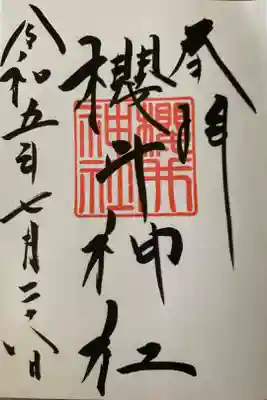 奉拝
櫻井神社
櫻井神社
令和五年七月二十八日